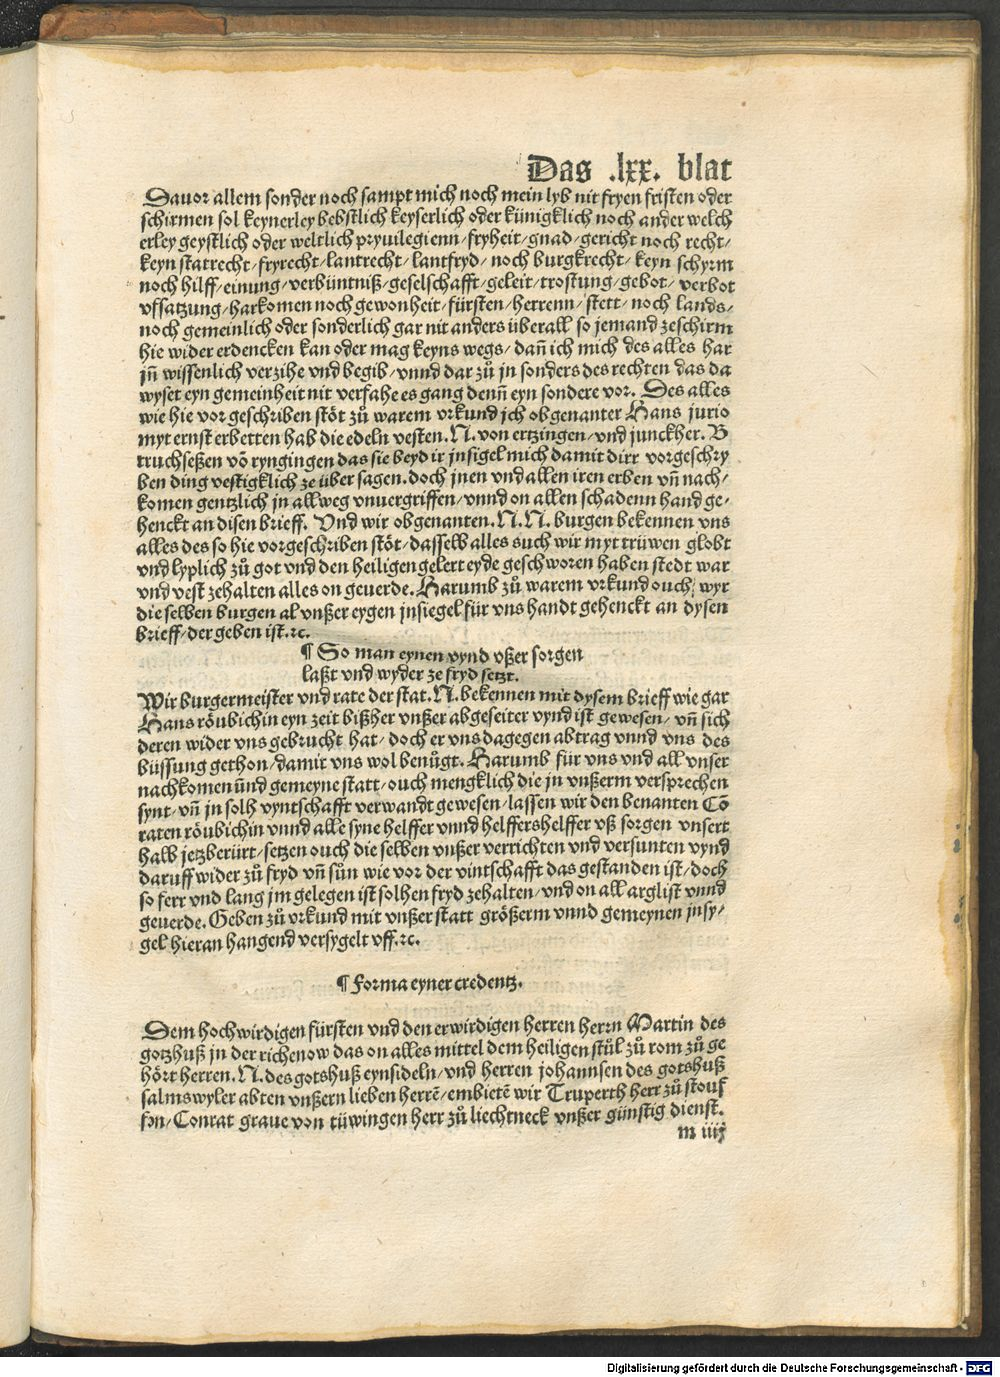 Das .lxx. blat
Dauor allem sonder noch sampt mich noch mein lyb nit fryen fristen oder
schirmen sol keynerley bebstlich keyserlich oder künigklich noch ander welch
erley geystlich oder weltlich pryuilegienn/fryheit/gnad/gericht noch recht/
keyn statrecht/fryrecht/lantrecht/lantfryd/noch burgkrecht/keyn schyrm
noch hilff/einung/verbüntniß/geselschafft/geleit/trostung/gebot/verbot
vffsatzung/harkomen noch gewonheit/fürsten/herrenn/stett/noch lands/
noch gemeinlich oder sonderlich gar nit anders überall so jemand ze schirm
hie wider erdencken kan oder mag keyns wegs/dañ ich mich des alles har
jñ wissenlich verzihe vnd begib/vnnd dar zů jn sonders des rechten das da
wyset eyn gemeinheit nit verfahe es gang denñ eyn sondere vor. Des alles
wie hie vor geschriben stöt zů warem vrkund jch obgenanter Hans jurio
myt ernst erbetten hab die edeln vesten.N.von ertzingen/vnd junckher.B
truchseßen võ ryngingen das sie beyd ir jnsigel mich damit dirr vorgeschry
ben ding vestigklich ze über sagen.doch jnen vnd allen iren erben vñ nach/
komen gentzlich jn allweg vnuergriffen/vnnd on allen schadenn hand ge/
henckt an disen brieff. Vnd wir obgenanten.N.N.burgen bekennen vns
alles des so hie vorgeschriben stöt/dasselb alles such wir myt trüwen globt
vnd lyplich zů got vnd den heiligen gelert eyde geschworen haben stedt war
vnd vest zehalten alles on geuerde.Harumb zů warem vrkund ouch wyr
die selben burgen al vnßer eygen jnsiegel für vns handt gehenckt an dysen
brieff/der geben ist.⁊c.
¶ So man eynen vynd vßer sorgen
laßt vnd wyder ze fryd setzt.
Wir burgermeister vnd rate der stat.N.bekennen mit dysem brieff wie gar
Hans röubichin eyn zeit bißher vnßer abgeseiter vynd ist gewesen/vñ sich
deren wider vns gebrucht hat/doch er vns dagegen abtrag vnnd vns des
büssung gethon/damit vns wol benůgt.Harumb für vns vnd all vnser
nachkomen ũnd gemeyne statt/ouch mengklich die jn vnßerm versprechen
synt/vñ jn solh vyntschafft verwandt gewesen/lassen wir den benanten Cõ
raten röubichin vnnd alle syne helffer vnnd helffershelffer vß sorgen vnsert
halb jetzberürt/setzen ouch die selben vnßer verrichten vnd versunten vynd
daruff wider zů fryd vñ sůn wie vor der vintschafft das gestanden ist/doch
so ferr vnd lang jm gelegen ist solhen fryd zehalten/vnd on all arglist vnnd
geuerde.Geben zů vrkund mit vnßer statt größerm vnnd gemeynen jnsy/
gel hieran hangend versygelt vff.⁊c.
¶ Forma eyner credentz.
Dem hochwirdigen fürsten vnd den erwirdigen herren herrn Martin des
gotzhuß jn der richenow das on alles mittel dem heiligen stůl zů rom zů ge
hört herren.N.des gotshuß eynsideln/vnd herren johannsen des gotshuß
salmswyler abten vnßern lieben herrẽ/embietẽ wir Truperth herr zů stouf
fen/Conrat graue von tüwingen herr zů liechtneck vnßer günstig dienst.
m iiij
Digitalisierung gefördert durch die Deutsche Forschungsgemeinschaft - DFG